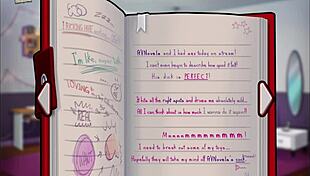 zzz
I'm like, super
LOVING
REAL
AVNovels and I had was today on stream!
I can't even begin to describe how good it felt!
His dick is PERFECT!
It hits all the right spots and drives me absolutely wild...
All I can think about is how much I wanna do it again!!
Mmmmmmmmmmmm!
I need to break out some of my toys...
Hopefully they will take my mind off AVNovels's cock